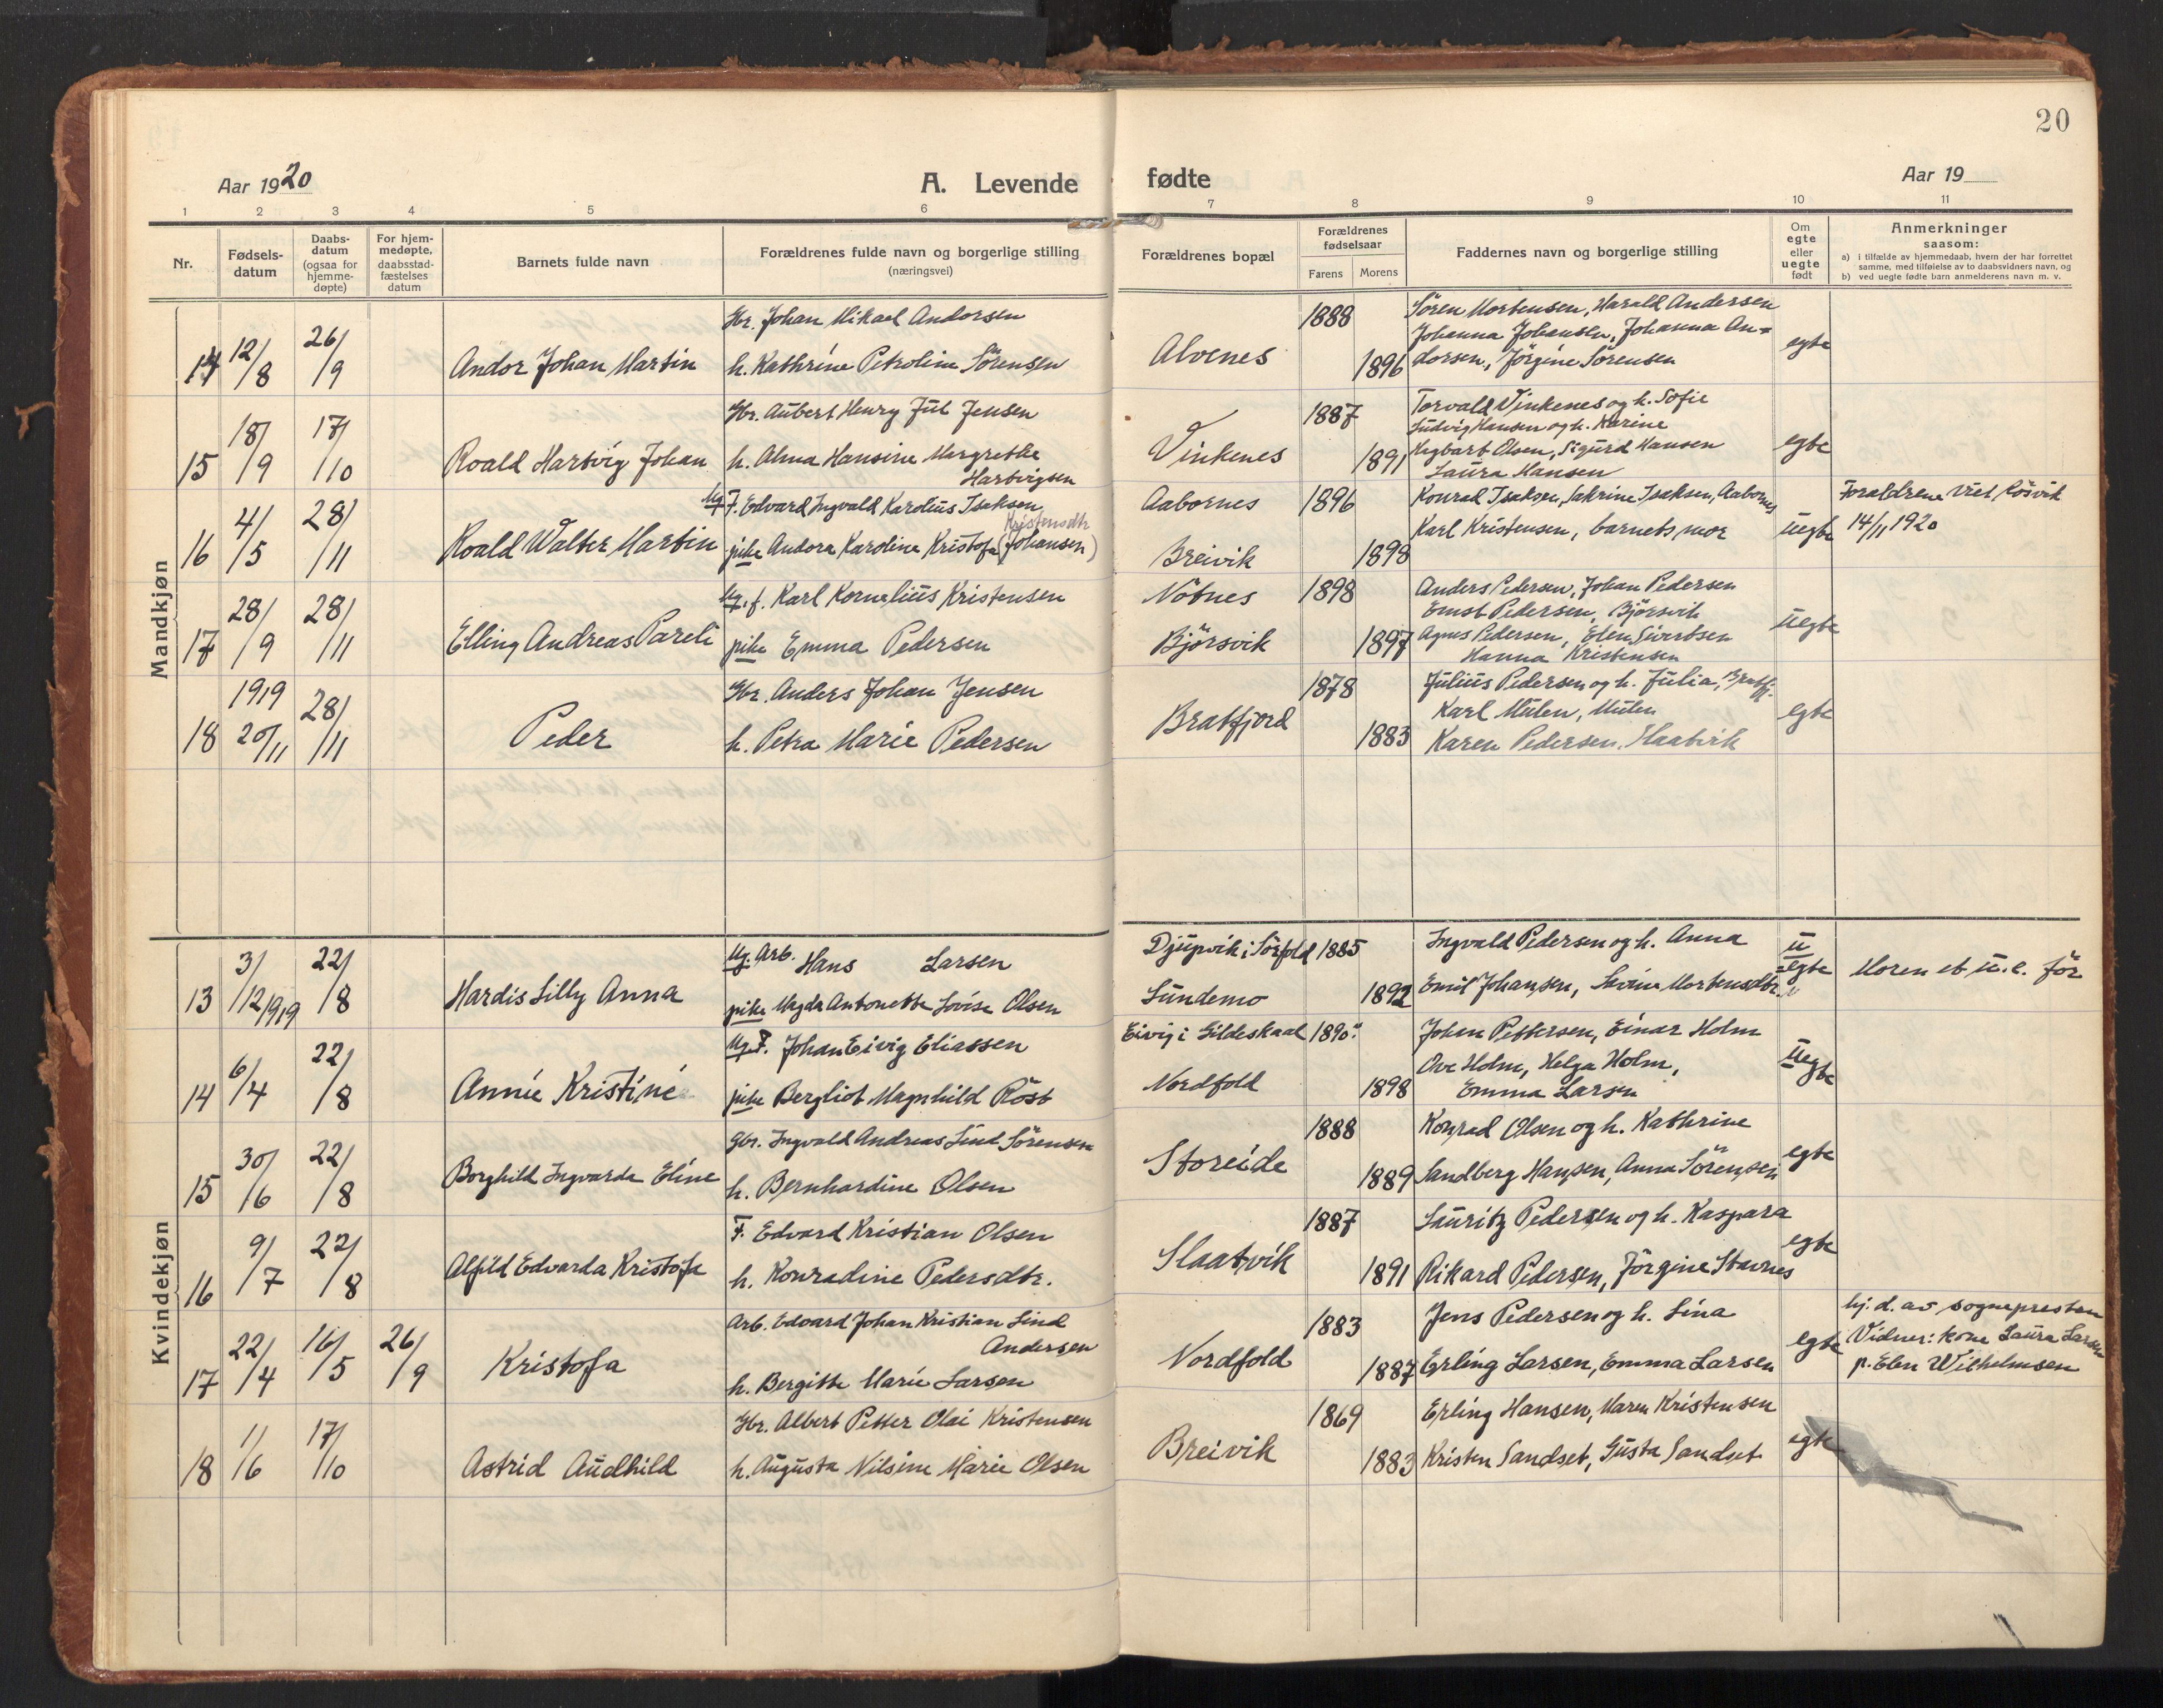 20
Aar 1920 A. Levende fødte Aar 19
1 2 3 4 5 6 7 8 9 10 11
Nr. Fødsels-datum Daabs-datum (ogsaa for hjemme-døpte) For hjem-medøpte, daabsstad-fæstelses datum Barnets fulde navn Forældrenes fulde navn og borgerlige stilling (næringsvei) Forældrenes bopæl Forældrenes fødselsaar Farens Morens Faddernes navn og borgerlige stilling Om egte eller uegte født Anmerkninger saasom:
a) i tilfælde av hjemmedaab, hvem der har forrettet samme, med tilføielse av to daabsvidners navn, og
b) ved uegte fødte barn anmelderens navn m. v.
Mandkjøn
Gbr. Johan Mikael Andorsen 1888 Sören Mortensen, Harald Andersen
Johanna Johansen, Johanna An=
14 12/8 26/9 Andor Johan Martin h. Kathrine Petroline Sörensen Alvenes 1896 dorsen, Jörgine Sörensen egte
Gbr. Aubert Henry Jul Jensen 1887 Torvald Vinkenes og h. Sofie
Ludvig Hansen og h. Karine
15 18/9 17/10 Roald Hartvig Johan h. Alma Hansine Margrethe Hartvigsen Vinkenes 1891 Hegbart Olsen, Sigurd Hansen egte
Laura Hansen
Ug. F. Edvard Ingvald Karolius Isaksen Aabornes 1896 Konrad Isaksen, Sakrine Isaksen, Aabornes Foraldrene viet Rösvik
Kristensdtr
16 4/5 28/11 Roald Walter Martin pike Andora Karoline Kristofa (Johansen) Breivik 1898 Karl Kristensen, barnets mor uegte 14/11 1920
Ug. f. Karl Kornelius Kristensen Nötnes 1898 Anders Pedersen, Johan Pedersen
Ernst Pedersen, Björsvik
17 28/9 28/11 Elling Andreas Pareli pike Emma Pedersen Björsvik 1897 Agnes Pedersen, Elen Sivertsen uegte
Hanna Kristensen
1919 Gbr. Anders Johan Jensen 1878 Julius Pedersen og h. Julia, Bratfj.
Karl Mulen, Mulen
18 20/11 28/11 Peder h. Petra Marie Pedersen Bratfjord 1883 Karen Pedersen, Slaatvik egte
Kvindekjøn
Ug. Arb. Hans Larsen Djupvik i Sörfold 1885 Ingvald Pedersen og h. Anna
13 3/12 1919 22/8 Hardis Lilly Anna pike Magda Antonette Lovise Olsen Lundemo 1892 Emil Johansen, Lovine Mortensdtr. uegte Moren et u. e. för
Ug. F. Johan Eivig Eliassen Eivig i Gildeskaal 1890 Johan Pettersen, Einar Holm
Ove Holm, Helga Holm,
14 6/4 22/8 Annie Kristine pike Bergliot Magnhild Röst Nordfold 1898 Emma Larsen uegte
Gbr. Ingvald Andreas Lind Sörensen 1888 Konrad Olsen og h. Kathrine
15 30/6 22/8 Borghild Ingvarda Eline h. Bernhardine Olsen Storeide 1889 Sandberg Hansen, Anna Sörensen egte
F. Edvard Kristian Olsen 1887 Lauritz Pedersen og h. Kaspara
16 9/7 22/8 Alfild Edvarda Kristofa h. Konradine Pedersdtr. Slaatvik 1891 Rikard Pedersen, Jörgine Stavnes egte
Arb. Edvard Johan Kristian Lind Andersen 1883 Jens Pedersen og h. Lina hj. d. av sognepresten
Vidner: kone Laura Larsen
17 22/4 16/5 26/9 Kristofa h. Bergitte Marie Larsen Nordfold 1887 Erling Larsen, Emma Larsen egte p. Elen Wilhelmsen
Gbr. Albert Petter Olai Kristensen 1869 Erling Hansen, Maren Kristensen
18 1/6 17/10 Astrid Audhild h. Augusta Nilsine Marie Olsen Breivik 1883 Kristen Sandset, Gusta Sandset egte